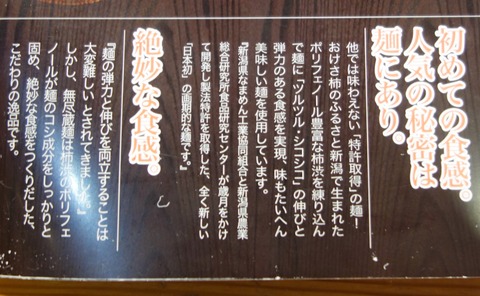 初めての食感。
人気の秘密は
麺にあり。
他では味わえない「特許取得」の麺！
おけさ柿のふるさと新潟で生まれた
ポリフェノール豊富な柿渋を練り込ん
で麺に「ツルツル・シコシコ」の伸びと
弾力のある食感を実現、味もたいへん
美味しい麺を使用しています。
『新潟県なまめん工業協同組合と新潟県農業
総合研究所食品研究センターが歳月をかけ
て開発し製法特許を取得した、全く新しい
「日本初」の画期的な麺です。』
絶妙な食感。
『麺の弾力と伸びを両立することは
大変難しいとされてきました。』
しかし、無尽蔵麺は柿渋のポリフェ
ノールが麺のコシ成分をしっかりと
固め、絶妙な食感をつくりだした、
こだわりの逸品です。